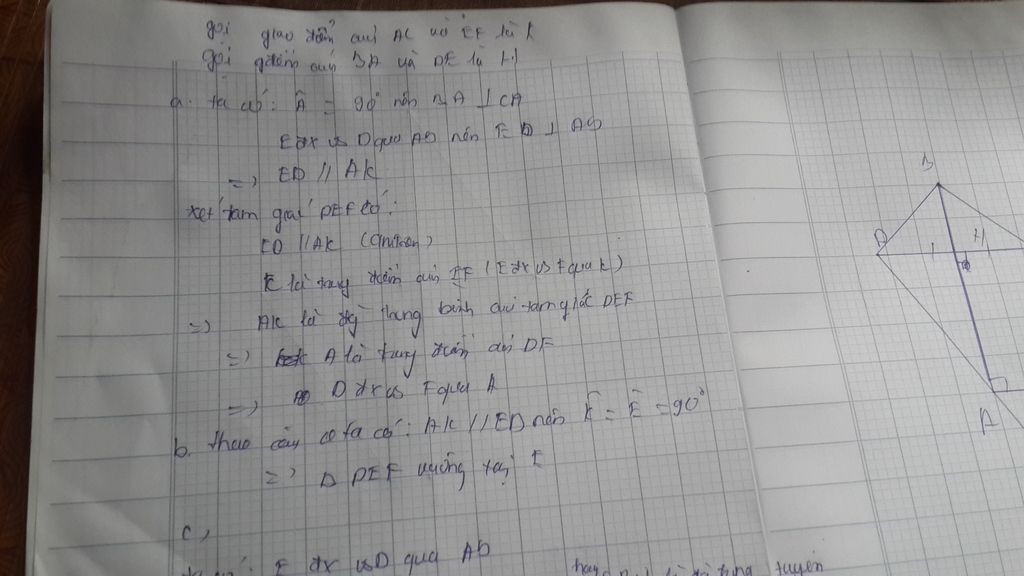 gọi giao điểm của AC và EF là k
gọi gđiểm của BA và DE là H
a. ta có: Â = 90° nên BA ⊥ CA
E đx vs D qua AB nên ED ⊥ AB
=> ED // AK
xét tam giác DEF có:
ED // AK (cmtrên)
K là trung điểm của EF (E đx vs F qua k)
=> AK là đg trung bình của tam giác DEF
=> A là trung điểm của DF
=> D đx vs F qua A
b. theo câu a ta có: AK // ED nên K̂ = Ê = 90°
=> Δ DEF vuông tại E
c,
E đx vs D qua Ab
hay
tuyến
B
D
H
A